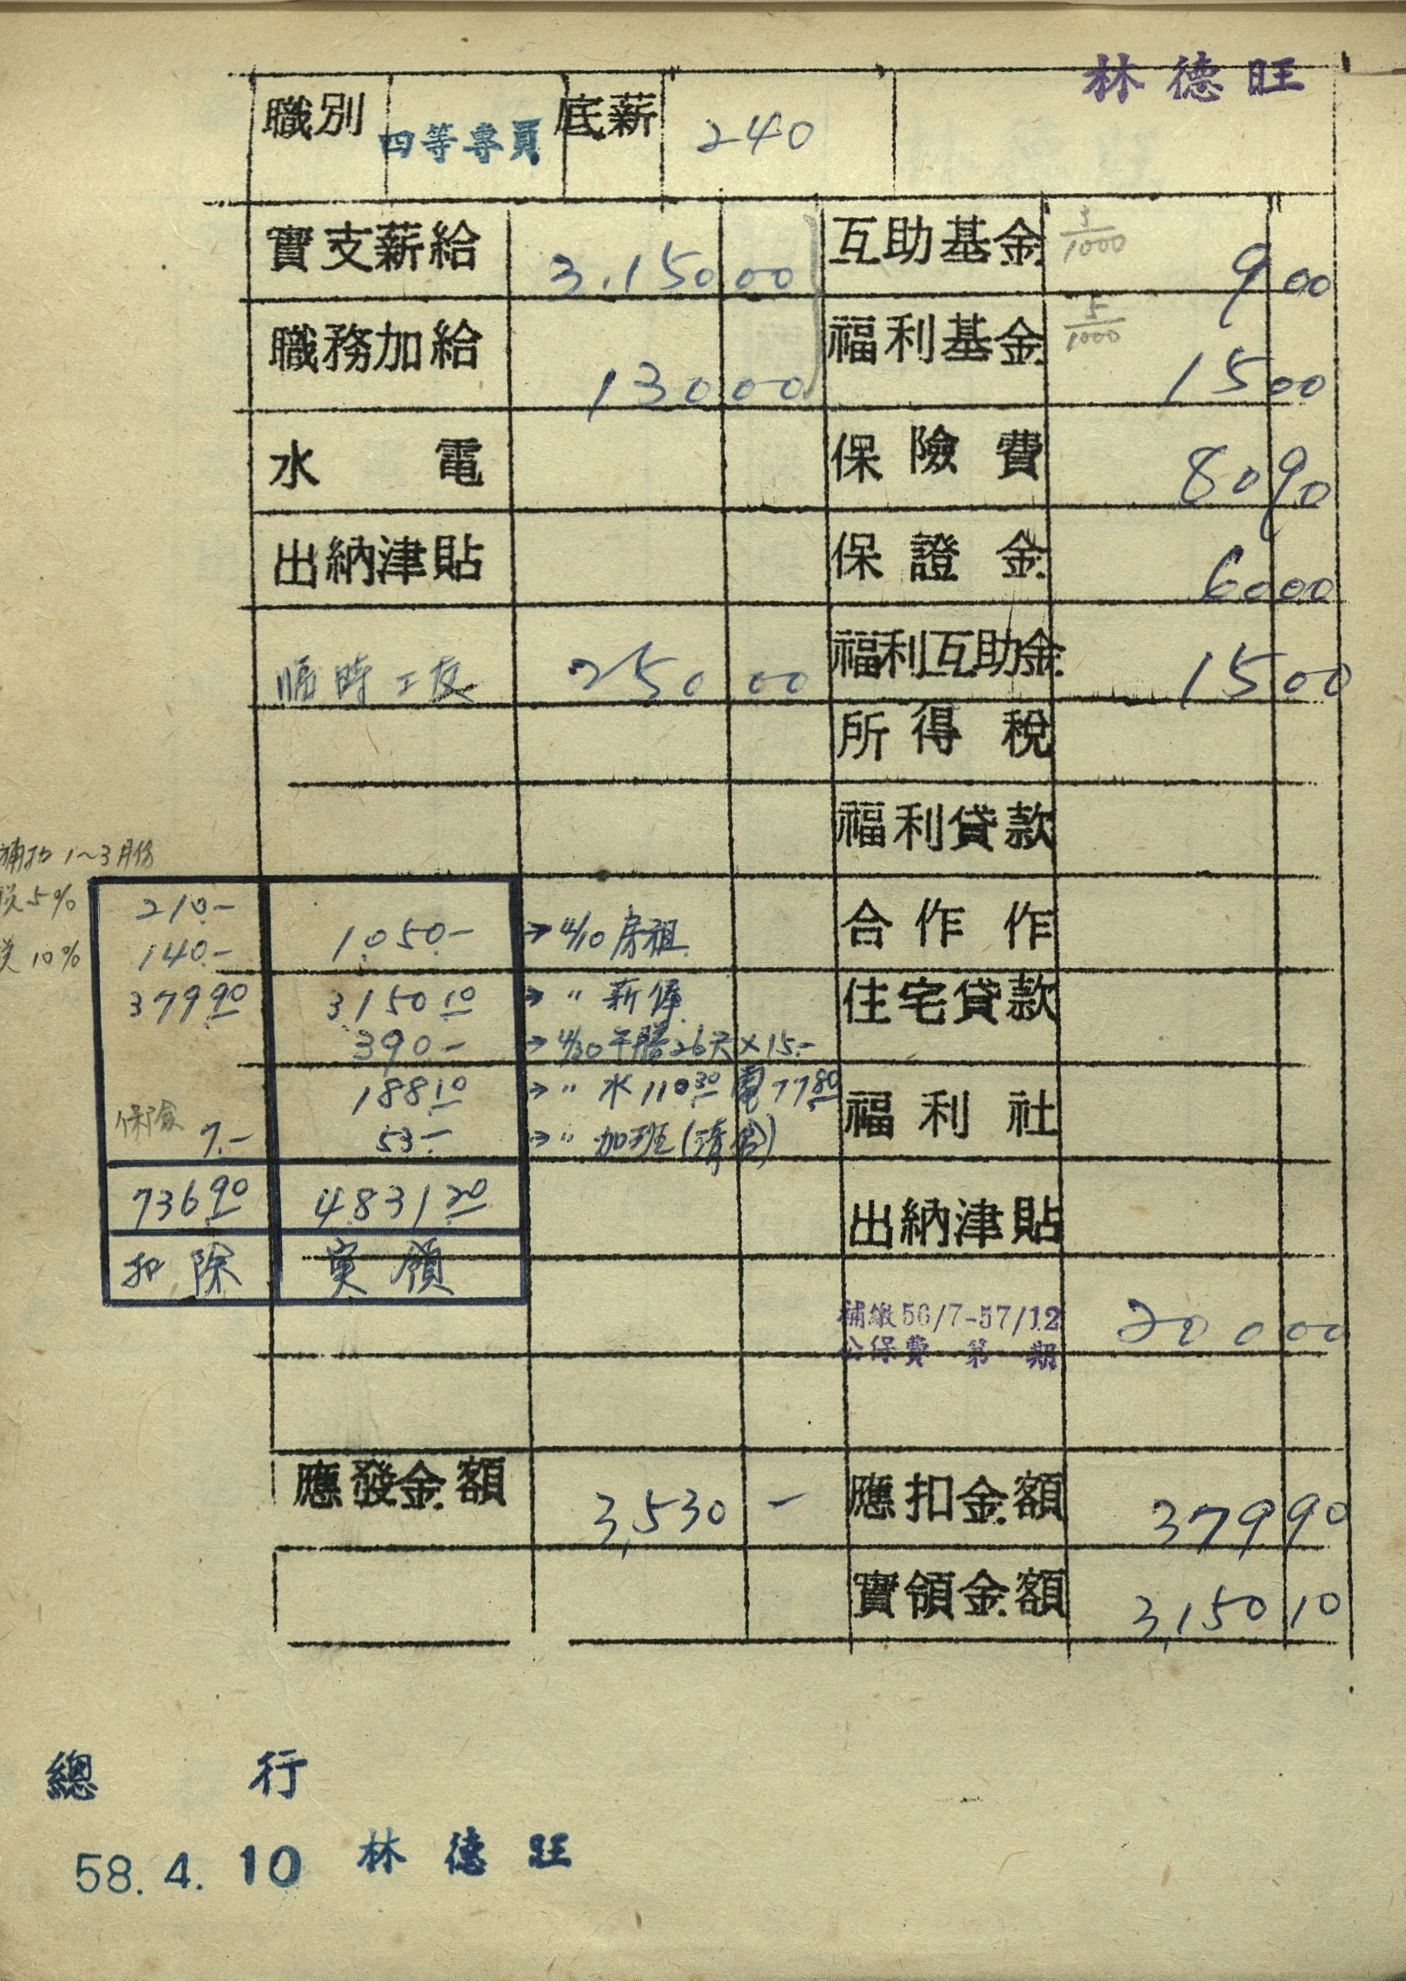 林德旺
職別 四等專員 底薪 240
實支薪給 3,150 00 互助基金 3/1000 9 00
職務加給 130 00 福利基金 5/1000 15 00
水電 保險費 80 90
出納津貼 保證金 60 00
臨時工友 250 00 福利互助金 15 00
所得稅
福利貸款
1~3月份
5% 210.-
10% 140.- 1,050.- → 4/10 房租 合作作
379.90 3150.10 → 〃 薪俸 住宅貸款
390- → 4/30 午膳26天×15.-
188.10 → 〃 水110.30 電77.80 福利社
保險 7.- 53.- → 〃 加班
736.90 4831.20 出納津貼
扣除 実領
補繳56/7-57/12 200 00
公保費 第 期
應發金額 3,530 - 應扣金額 379 90
實領金額 3,150 10
總行
58.4.10 林德旺